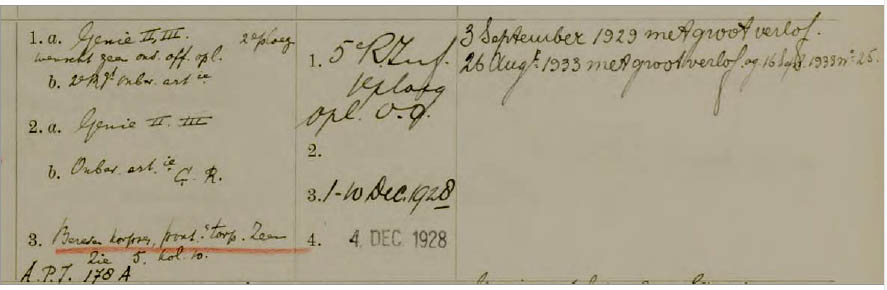 1. a. Genie II, III. 2e ploeg
wenscht zeer ond. off. opl.
b. 2e Rgt onber. art ie
2. a. Genie II. III
b. Onber. art. ie C. R.
3. korps, pont. torp.
Zie 5. kol. 10.
A.P.T. 178 A
1. 5e R. Inf.
ploeg
opl. O.O.
2.
3. 1-10 Dec. 1928
4. 4. DEC. 1928
3 September 1929 met groot verlof.
26 Augt. 1933 met groot verlof. 16 Sept. 1933 no. 25.